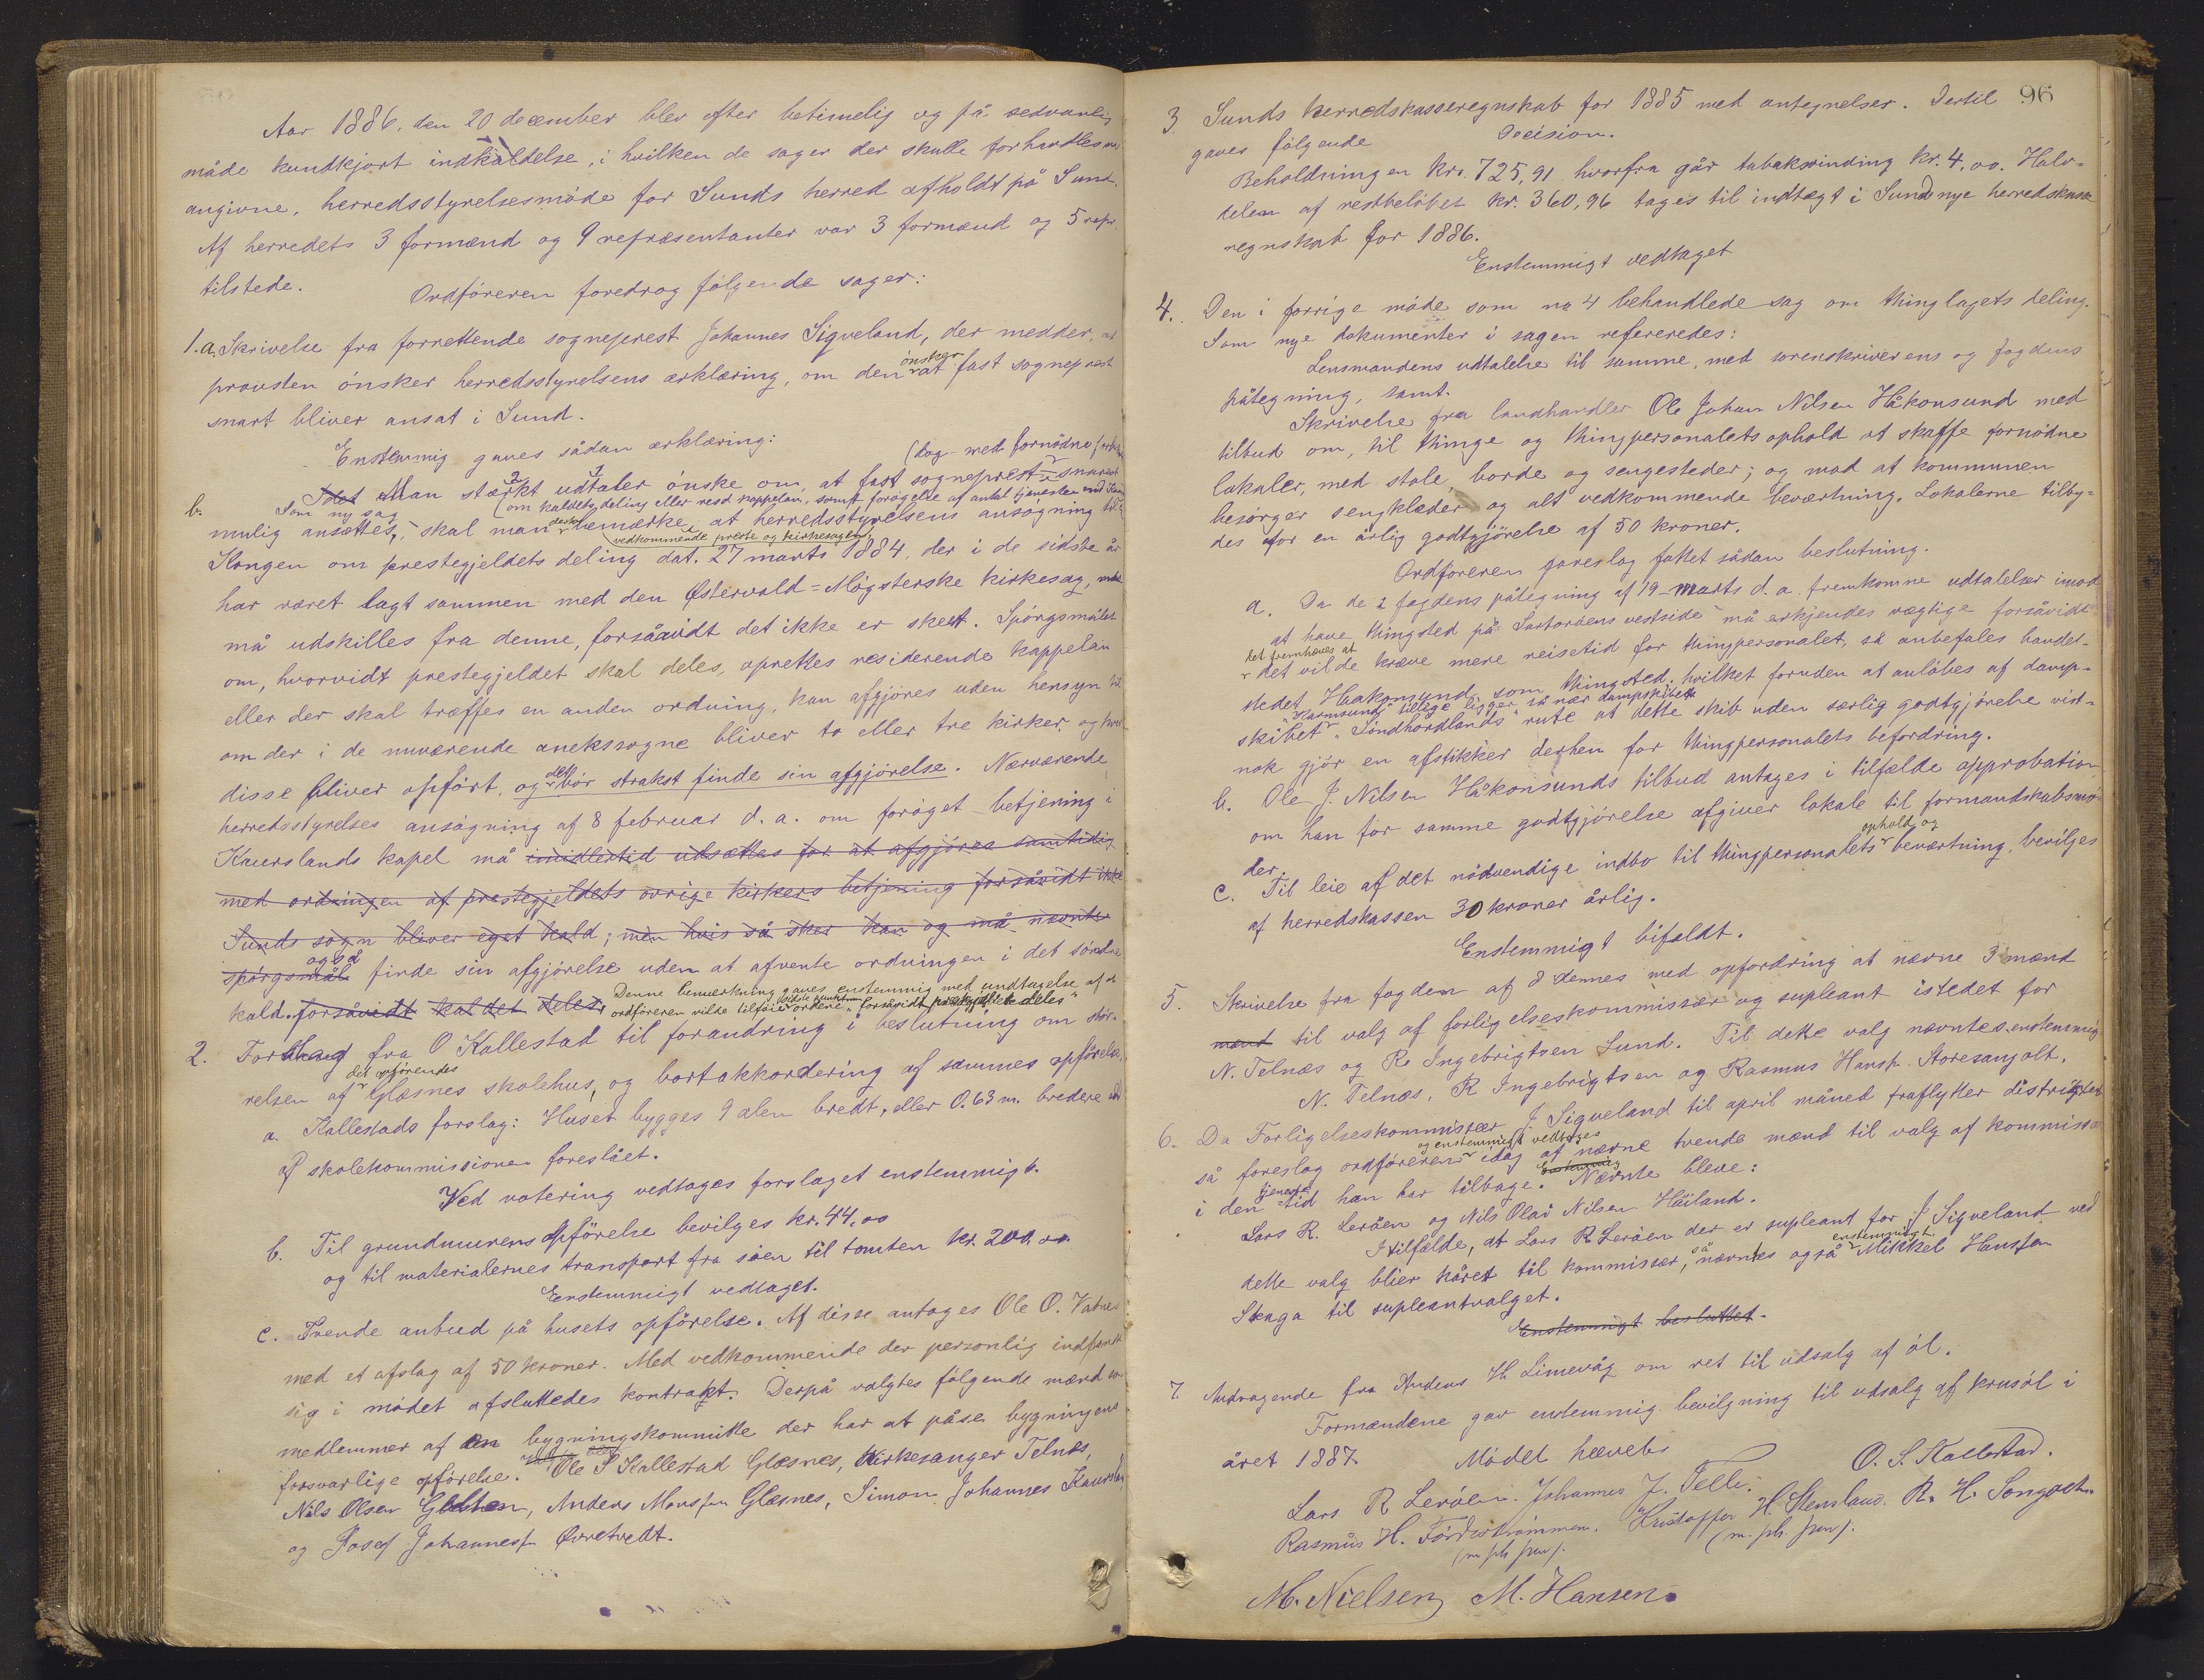 Aar 1886, den 20 december blev efter betimelig og på sedvanlig
måde kundkjort indkaldelse, i hvilken de sager der skulle forhandles var
angivne, herredsstyrelsesmöde for Sunds herred afholdt på Sund.
Af herredets 3 formænd og 9 repræsentanter var 3 formænd og 5 repr.
tilstede.
Ordföreren foredrog fölgende sager:
1. a. Skrivelse fra forrettende sogneprest Johannes Sigveland, der medder, at
provsten önsker herredsstyrelsens erklæring, om den önsker at fast sogneprest
snart bliver ansat i Sund.
Enstemmig gaves sådan erklæring:
(dog med fornödne
Idet Man stærkt udtaler önske om, at fast sogneprest snarest
b. Som ny sag
(om kaldets deling eller resd kappelan, samt forögelse af antal tjenester ved
mulig ansættes, skal man derhos bemærke, at herredsstyrelsens ansögning til
vedkommende preste og kirkesagen,
Kongen om prestegjeldets deling dat. 27 marts 1884, der i de sidste år
har været lagt sammen med den Østervold=Mögsterske kirkesag,
må udskilles fra denne, forsåvidt det ikke er skeet. Spörgsmålet
om, hvorvidt prestegjeldet skal deles, oprettes residerende kappelan
eller der skal træffes en anden ordning, kan afgjöres uden hensyn til
om der i de nuværende anekssogne bliver to eller tre kirker, og hvor
disse bliver opfört, og det bör strakst finde sin afgjörelse. Nærværende
herredsstyrelses ansögning af 8 februar d. a. om foröget betjening i
Kaurslands kapel må imidlertid udsættes for at afgjöres samtidig
med ordningen af prestegjeldets övrige kirkers betjening forsåvidt ikke
Sunds sogn bliver eget kald; men hvis så sker kan og må nævnte
spörgsmål også finde sin afgjörelse uden at afvente ordningen i det söndre
kald. forsåvidt kaldet deles. Denne bemærkning gaves enstemmig med undtagelse af at
ordföreren vilde tilföie sidste punktum ordene "forsåvidt prestegjeldet deles"
2. Forslag fra O Kallestad til forandring i beslutning om stör-
relsen af det opförendes Glæsnes skolehus, og bortakkordering af sammes opförelse.
a. Kallestads forslag: Huset bygges 9 alen bredt, eller 0.63 m. bredere end
af skolekommissionen foreslået.
Ved votering vedtages forslaget enstemmigt.
b. Til grundmurens opförelse bevilges kr. 44,00
og til materialernes transport fra söen til tomten kr. 200.00
Enstemmigt vedtaget.
c. Tvende anbud på husets opförelse. Af disse antages Ole O. Vatnes
med et afslag af 50 kroner. Med vedkommende der personlig indfandt
sig i mödet afsluttedes kontrakt. Derpå valgtes fölgende mænd som
medlemmer af en bygningskommitte der har at påse bygningens
forsvarlige opförelse. Ole S Kallestad Glæsnes, Kirkesanger Telnæs,
Nils Olsen Glesnen, Anders Monsen Glæsnes, Simon Johannes Kausland
og Josef Johannesen Övretvedt.
96
3. Sunds herredskasseregnskab for 1885 med antegnelser. Dertil
gaves fölgende Decision.
Beholdningen Kr. 725,91 hvorfra går tabakvinding Kr. 4,00. Halv-
delen af restbelöbet Kr. 360,96 tages til indtægt i Sund nye herredskasse
regnskab for 1886.
Enstemmigt vedtaget
4. Den i forrige möde som no 4 behandlede sag om thinglagets deling.
Som nye dokumenter i sagen refereredes:
Lensmandens udtalelse til samme, med sorenskriverens og fogdens
påtegning, samt.
Skrivelse fra landhandler Ole Johan Nilsen Håkonsund med
tilbud om, til thinge og thingpersonalets ophold at skaffe fornödne
lokaler, med stole, borde og sengesteder; og mod at kommunen
besörger sengklæder og alt vedkommende beværtning. Lokalerne tilby-
des for en årlig godtgjörelse af 50 kroner.
Ordföreren foreslog fattet sådan beslutning.
a. Da de i fogdens påtegning af 19 marts d. a. fremkomne udtalelser imod
at have thingsted på "Sartoröens vestside" må erkjendes vægtige forsåvidt
det fremhæves at
det vilde kræve mere reisetid for thingpersonalet, så anbefales handel-
stedet Haakonsund som thingsted, hvilket foruden at anlöbes af damp-
skibet "Karmsund" tillige ligger så nær dampskibet
"Söndhordlands" rute at dette skib uden særlig godtgjörelse vist-
nok gjör en afstikker derhen for thingpersonalets befordring.
b. Ole J. Nilsen Håkonsunds tilbud antages i tilfælde approbation
om han for samme godtgjörelse afgiver lokale til formandskabsmö-
der.
c. Til leie af det nödvendige indbo til thingpersonalets ophold og beværtning, bevilges
af herredskassen 30 kroner årlig.
Enstemmigt bifaldt.
5. Skrivelse fra fogden af 8 dennes med opfordring at nævne 3 mænd
mænd til valg af forligelseskommissær og supleant istedet for
N. Telnæs og R. Ingebrigtsen Sund. Til dette valg nævntes enstemmig
N. Telnæs, R Ingebrigtsen og Rasmus Hansen Storesanjolt.
6. Da Forligelseskommissær J. Sigveland til april måned fraflytter distriktet
så foreslog ordföreren og enstemmigt vedtages idag at nævne tvende mænd til valg af kommissær
i den tjeneste tid han har tilbage. Enstemmig Nævnte bleve:
Lars R. Leröen og Nils Olai Nilsen Håiland.
I tilfælde, at Lars R Leröen der er supleant for J Sigveland ved
dette valg blier kåret til kommissær, så nævntes også enstemmigt Mikkel Hansen
Skaga til supleantvalget.
Enstemmigt besluttet.
7. Andragende fra Anders H. Limevåg om ret til udsalg af öl.
Formændene gav enstemmig bevilgning til udsalg af krusöl i
året 1887. Mödet hævet
Lars R Leröen. Johannes J. Telle. O. S. Kallestad.
Rasmus H. Fördeströmmen. Kristoffer H. Stensland. R. H. Songoth.
(m. ph. pen). (m. ph. pen).
M. Nielsen M. Hansen.